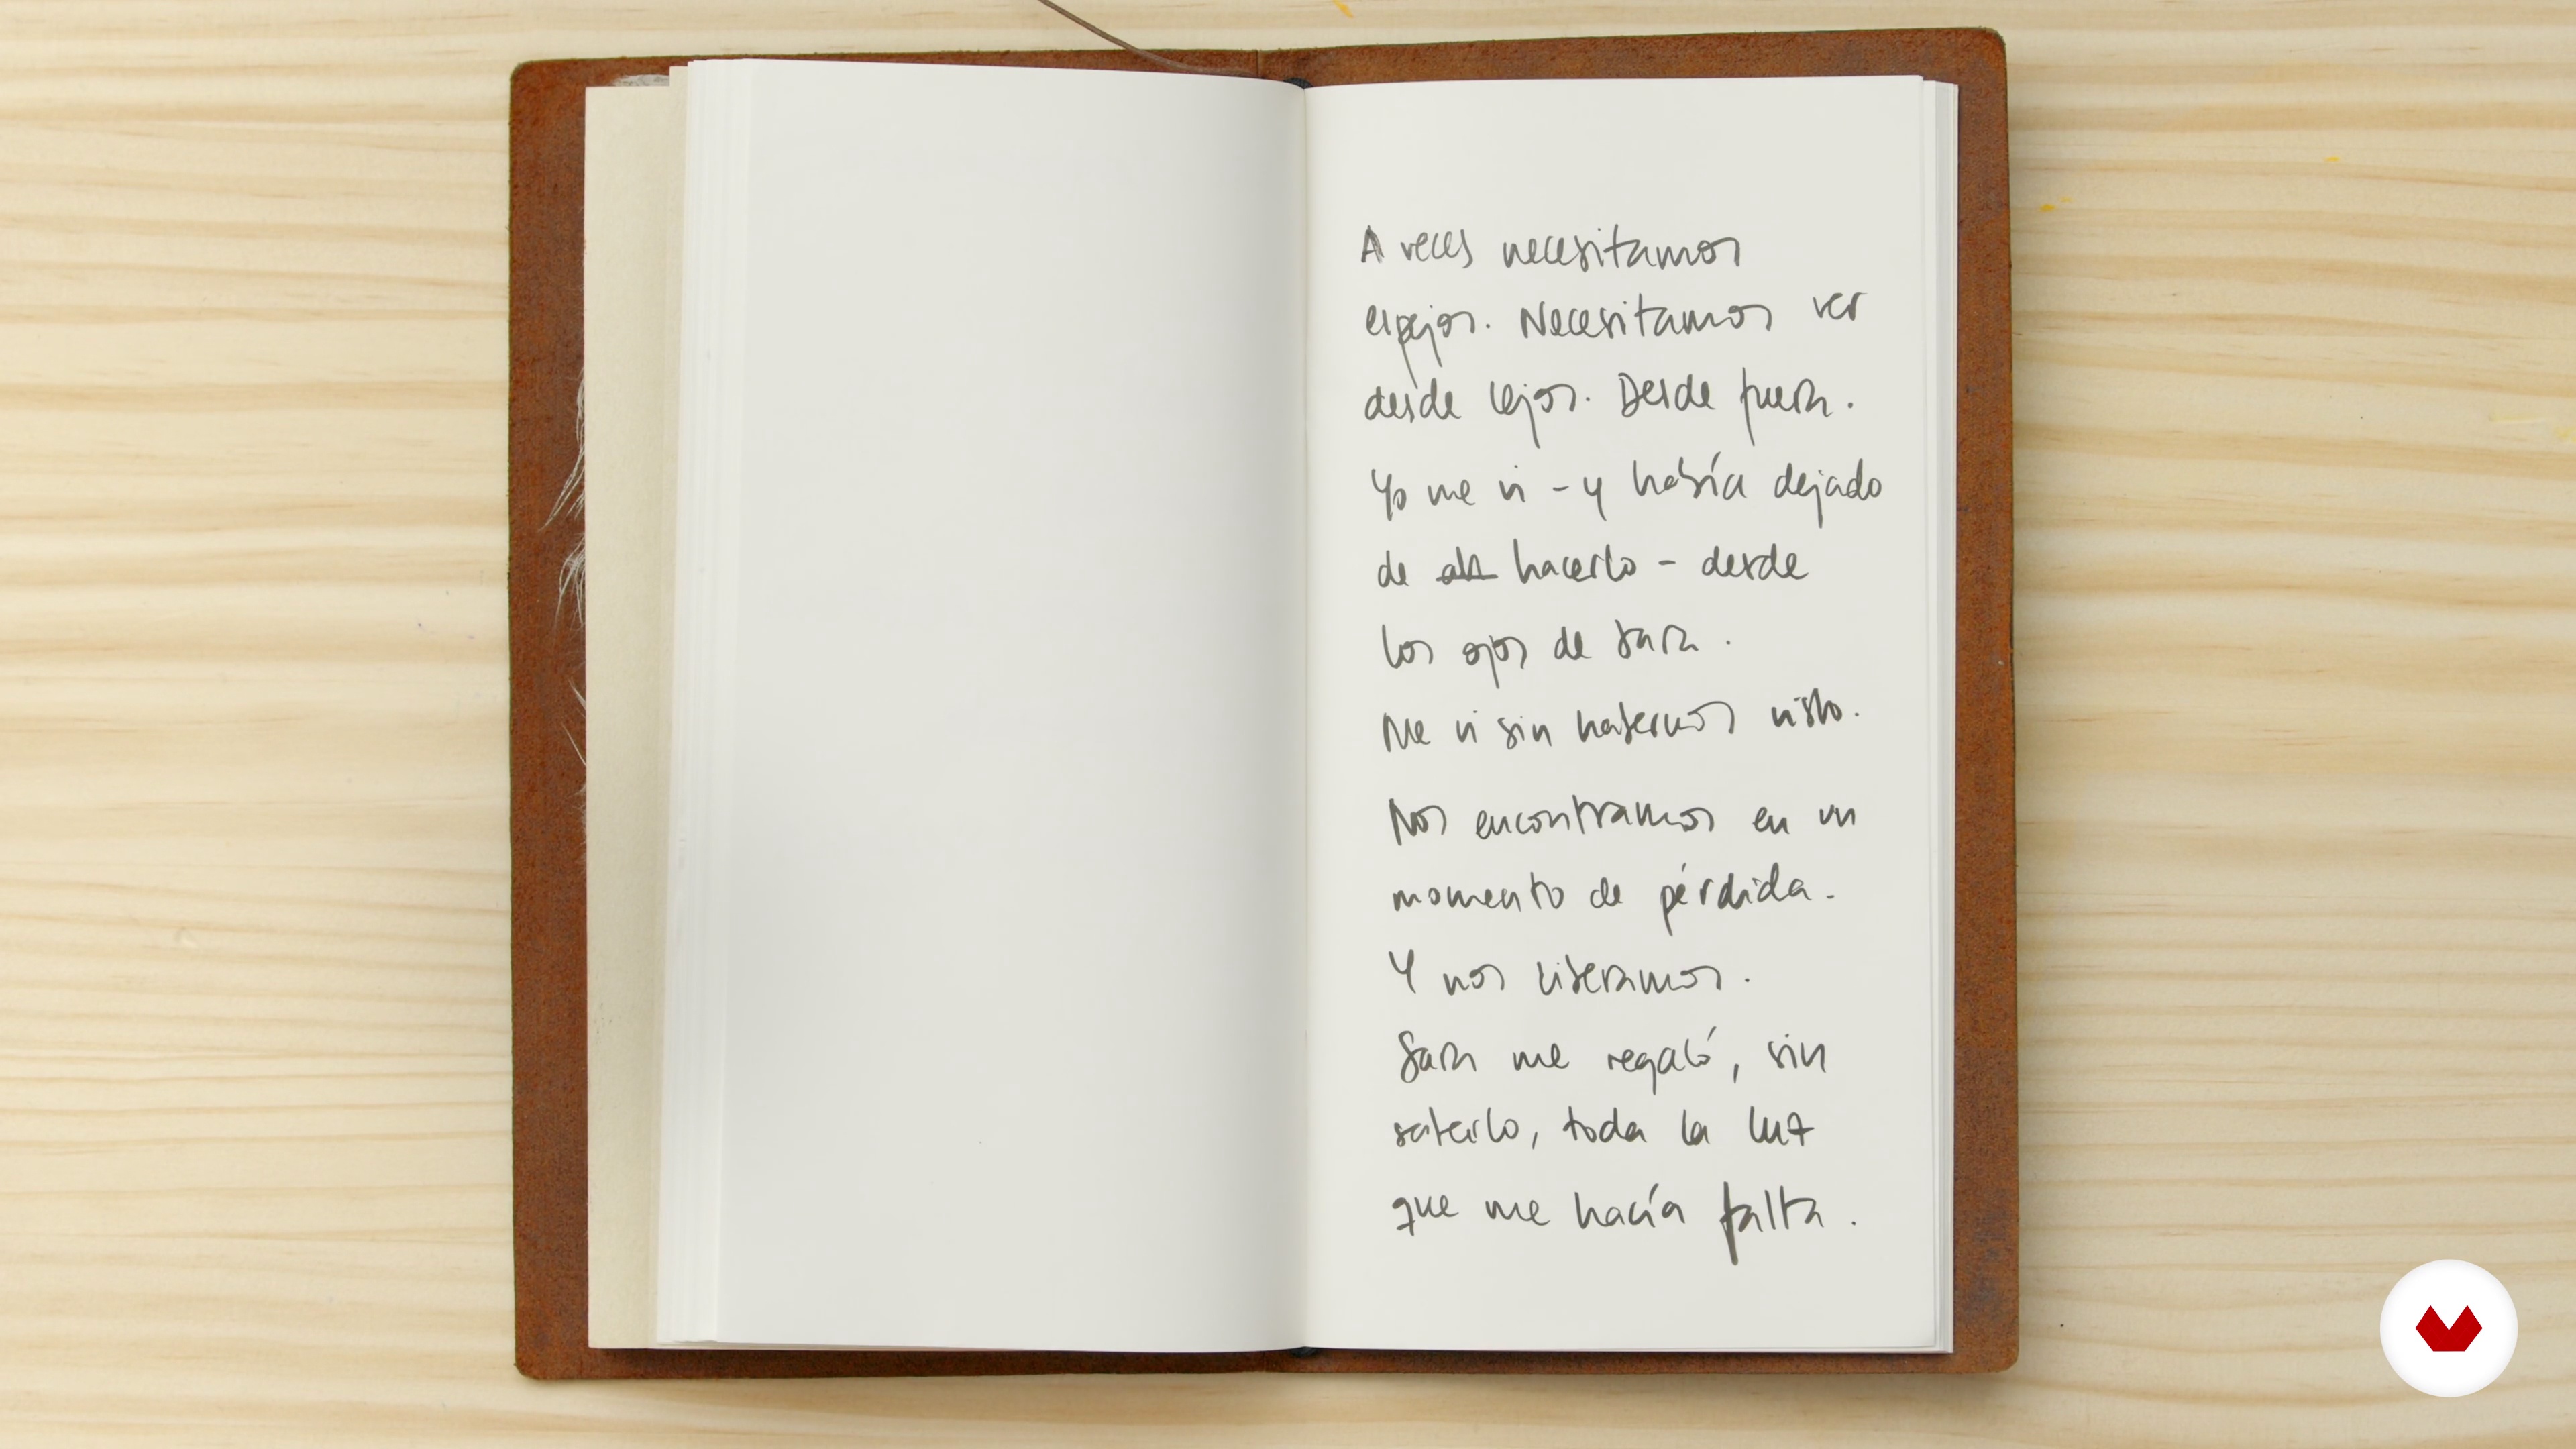 A veces necesitamos
espejos. Necesitamos ver
desde lejos. Desde fuera.
Yo me vi - y había dejado
de hacerlo - desde
los ojos de Sara.
Me vi sin habernos visto.
Nos encontramos en un
momento de pérdida.
Y nos liberamos.
Sara me regaló, sin
saberlo, toda la luz
que me hacía falta.